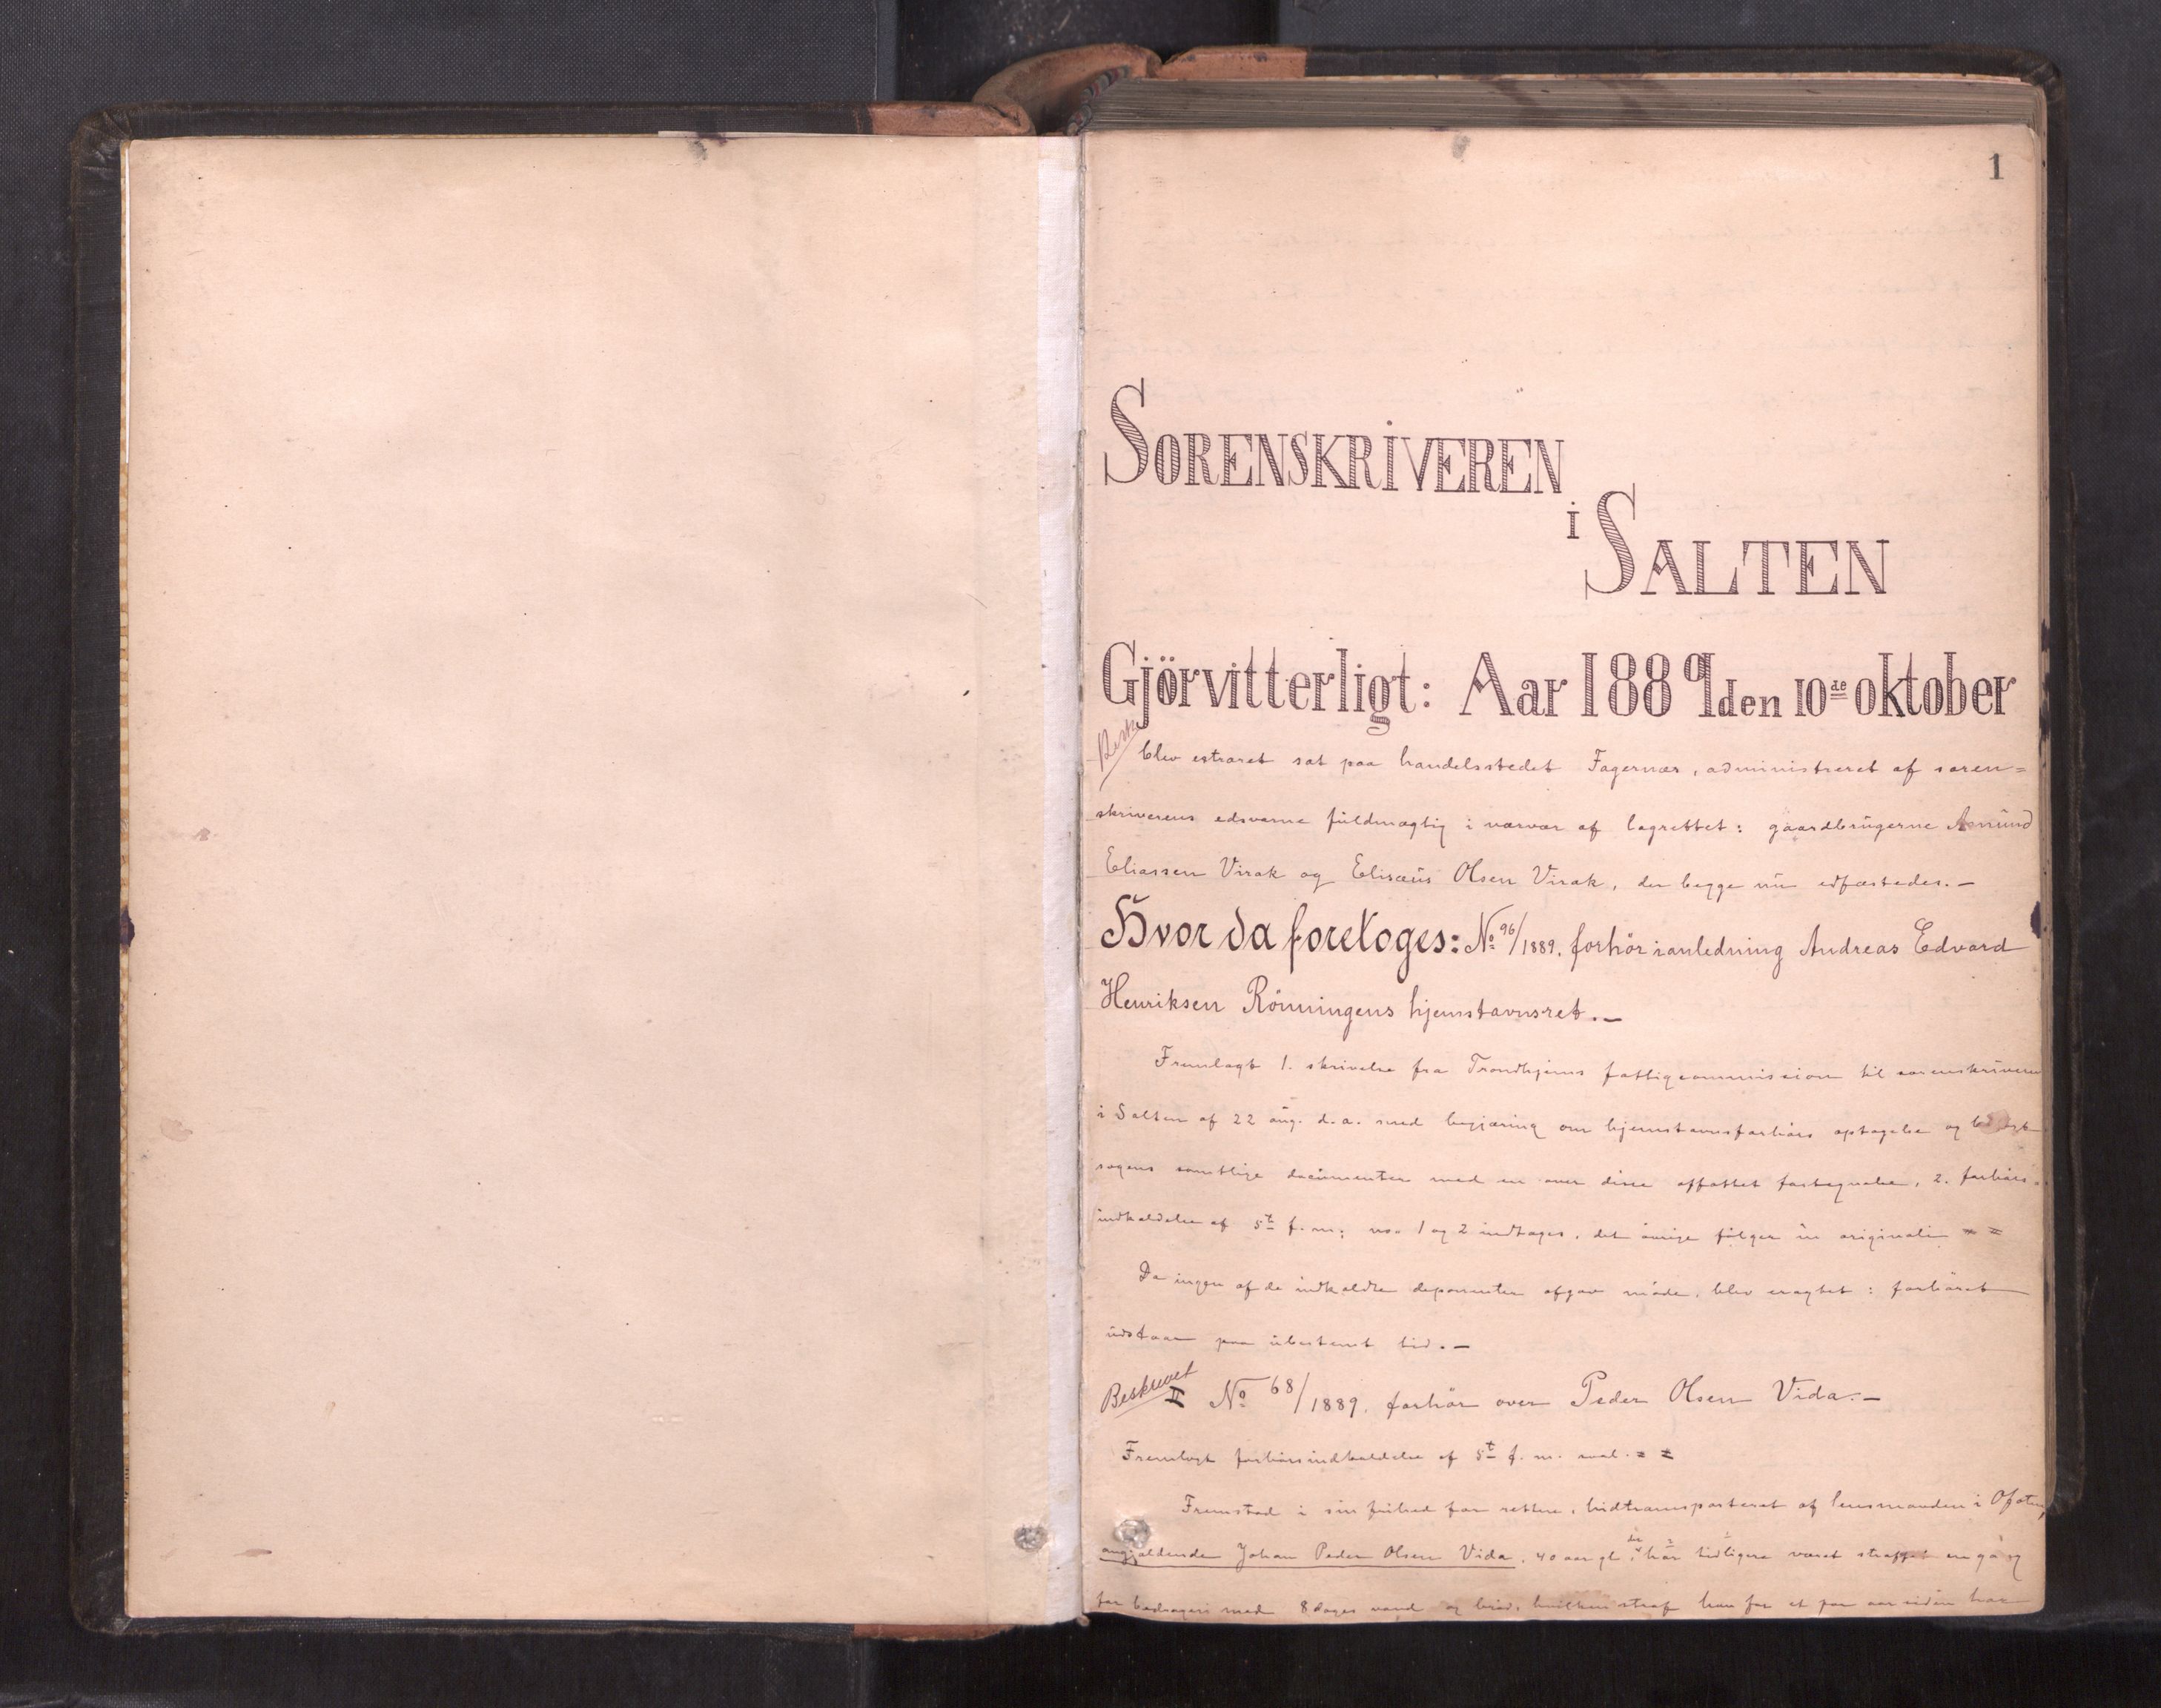 1
SORENSKRIVEREN
i SALTEN
Gjörvitterligt: Aar 1889 den 10de oktober
Beskr
blev extraret sat paa handelsstedet Fagernæs, administreret af soren=
skriverens edsvorne fuldmægtig i nærvær af lagrettet: gaardbrugerne Amund
Eliassen Virak og Elisæus Olsen Virak, der begge nu edfæstedes. —
Hvor da foretoges: No 96/1889. forhör i anledning Andreas Edvard
Henriksen Rönningens hjemstavnsret. —
Fremlagt 1. skrivelse fra Trondhjems fattigcommission til sorenskriveren
i Salten af 22 aug. d.a. med begjæring om hjemstavnsforhörs optagelse og
sagens samtlige documenter med en over disse affattet fortegnelse, 2. forhörs-
indkaldelse af 5t f.m.; no. 1 og 2 indtages, det övrige fölger in originali = =
Da ingen af de indkaldte deponenter afgav möde, blev eragtet: forhöret
udstaar paa ubestemt tid. —
Beskrevet
II No 68/1889. forhör over Peder Olsen Vida. —
Fremlagt forhörsindkaldelse af 5t f.m. = =
Fremstod i sin frihed for retten, hidtransporteret af lensmanden i Ofoten,
angjældende Johan Peder Olsen Vida, 40 aar gl. har tidligere været straffet en gang
for bedrageri med 8 dages vand og bröd, hvilken straf han for et par aar siden har